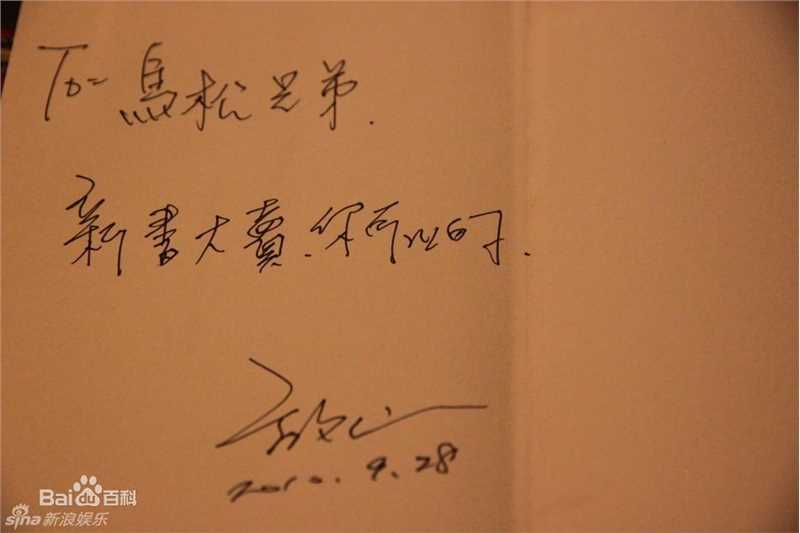 To= 馬松兄弟.
新書大賣.你可以的.
2010.9.28
Bai du 百科
sina 新浪娱乐